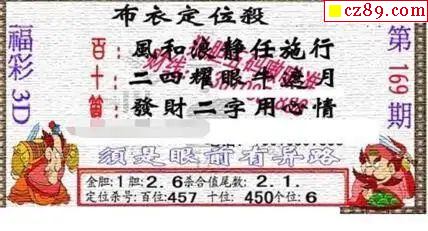 cz89.com
布衣定位殺
福彩3D
第169期
百：風和浪靜任施行
十：二四耀眼牛遼月
個：發財二字用心情
須是眼前有昇路
金胆:1胆:2.6杀合值尾数:2.1.
定位杀号:百位:457 十位:450个位:6